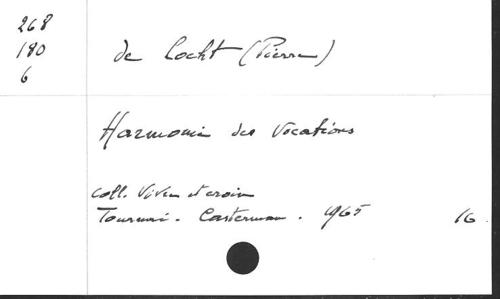 268
180
6
de Locht (Pierre)
Harmonie des Vocations
coll. Vivre et croire
Tournai. Casterman. 1965 16